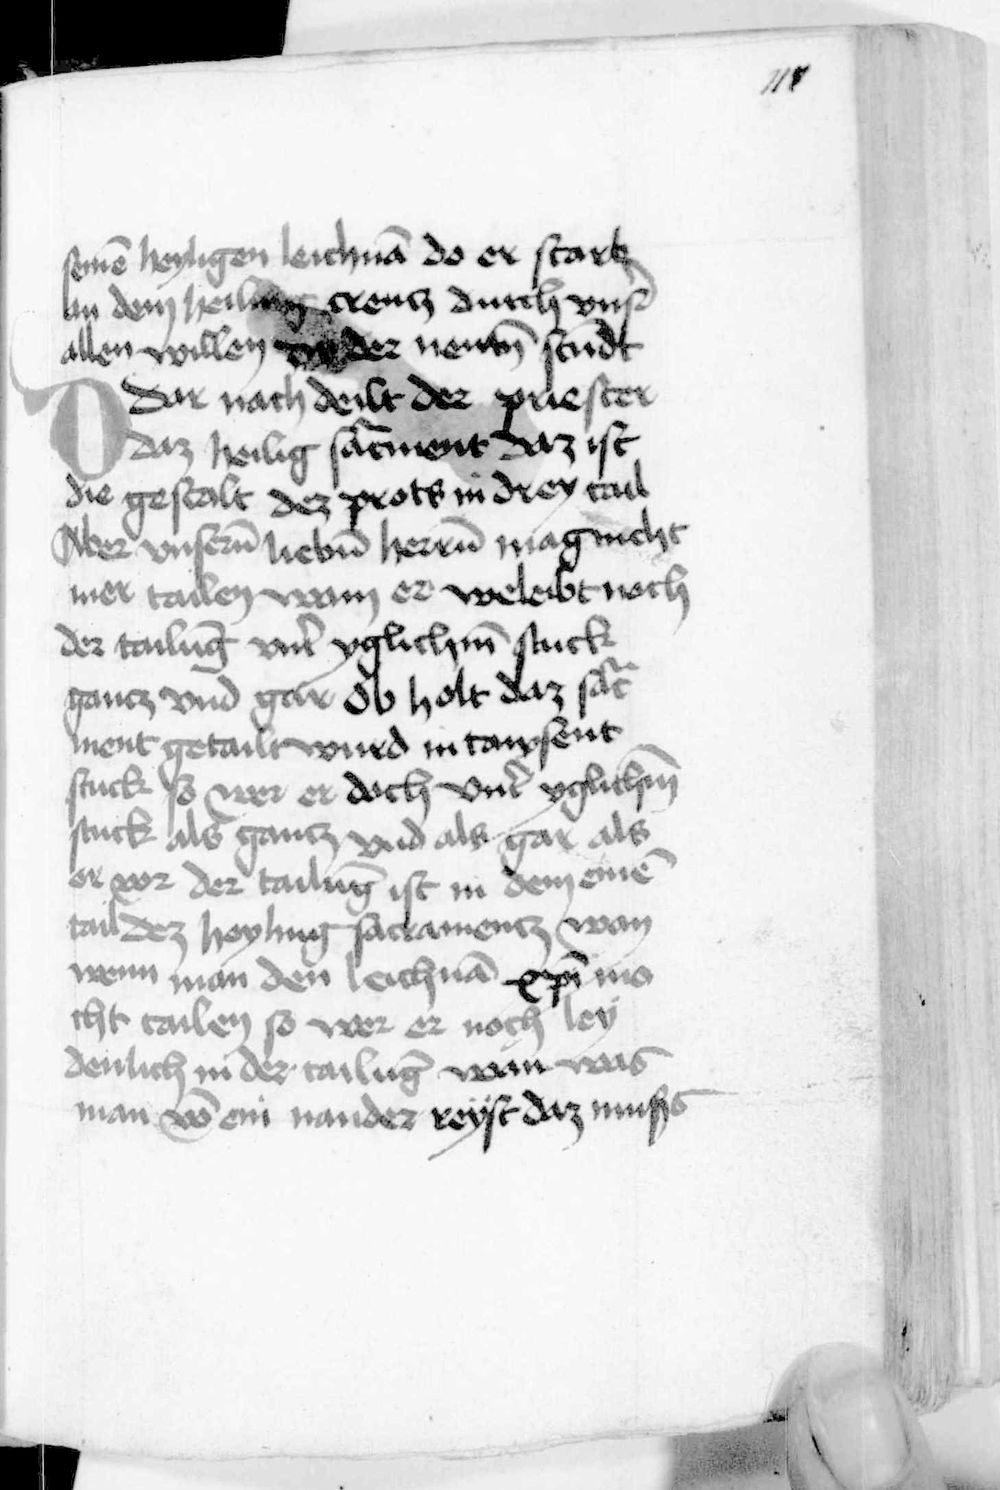 seinē heyligen leichnā do er starb
an dem heiling creutz durch vnsʼ
allen willen in der newtn̄ stūdt
Dar nach deilt der priester
daz heilig sac̄ment daz ist
die gestalt dez prots in drey tail
Aber vnserīn liebīn herrn̄ mag nicht
mer tailen wann er weleibt noch
der tailūg vntʼ yglichm̄ stuck
gantz vnd gar Ob holt daz sac̄
ment getailt wurd in tawsent
stuck so wer er doch vntʼ yglichm̄
stuck als gantz vnd als gar als
er vor der tailūg ist in dem einē
tail dez heyling sacramentz wan
wenn man den leichnā xp̄i mo
cht tailen so wer er noch ley
denlich in der tailūg wan was
man vō ein nander reyst daz muss